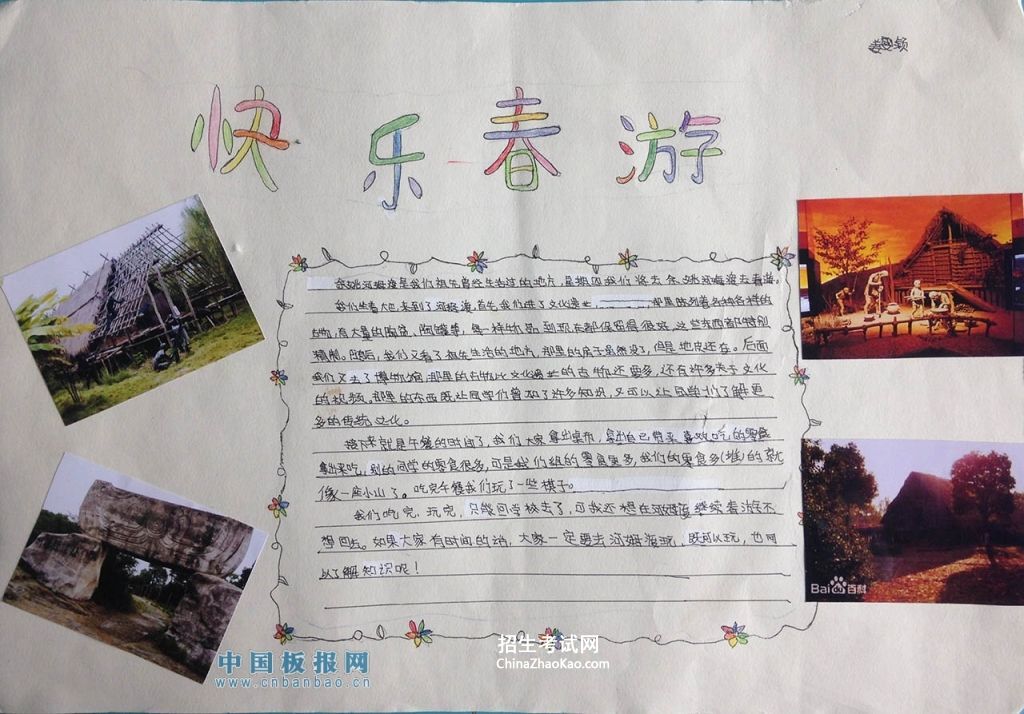 快乐春游
余姚河姆渡是我们祖先曾经生活过的地方,星期四我们将去余姚河姆渡去春游。
我们坐着大巴来到了河姆渡,首先我们进了文化遗址 那里陈列着各种各样的
古物,有大量的陶盆,陶罐等,每一样物品到现在都保留得很好,这些东西都特别
精致。随后,我们又看了祖先生活的地方,那里的房子虽然没了,但是地皮还在。后面
我们又去了博物馆,那里的古物比文化遗址的古物还要多,还有许多关于文化
的视频,那里的东西既让同学们增加了许多知识,又可以让同学们了解更
多的传统文化。
接下来就是午餐的时间了,我们大家拿出桌布,拿出自己带来喜欢吃的零食
拿出来吃,别的同学的零食很多,可是我们组的零食更多,我们的零食多(堆)的就
像一座小山了。吃完午餐我们玩了一些棋子。
我们吃完,玩完,只能回学校去了,可我还想在河姆渡继续春游不
想回去。如果大家有时间的话,大家一定要去河姆渡玩,既可以玩,也可
以了解知识呢!
Bai百科
中国板报网
www.cnbanbao.cn
招生考试网
ChinaZhaoKao.com